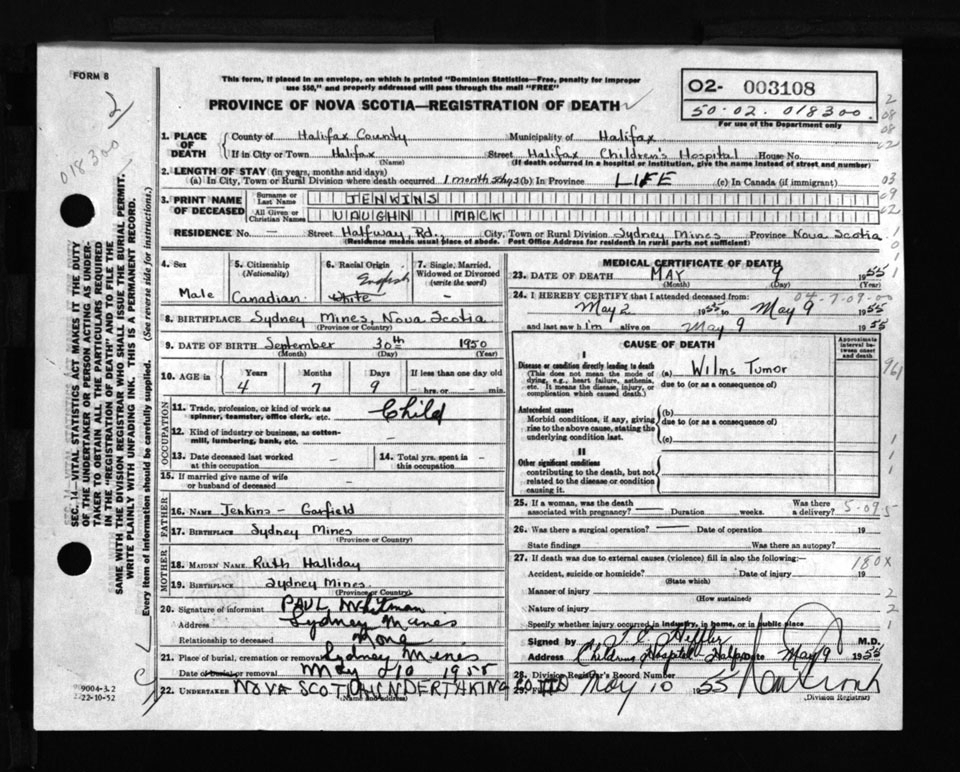 FORM 8
2
018300
This form, if placed in an envelope, on which is printed "Dominion Statistics—Free, penalty for improper
use $50," and properly addressed will pass through the mail "FREE"
PROVINCE OF NOVA SCOTIA—REGISTRATION OF DEATH
O2- 003108
50-02. 018300.
For use of the Department only
1. PLACE OF DEATH County of Halifax County Municipality of Halifax
If in City or Town Halifax (Name) Street Halifax Children's Hospital House No.
(If death occurred in a hospital or institution, give the name instead of street and number)
2. LENGTH OF STAY (in years, months and days)
(a) In City, Town or Rural Division where death occurred 1 month (b) In Province LIFE (c) In Canada (if immigrant)
3. PRINT NAME OF DECEASED Surname or Last Name JENKINS
All Given or Christian Names VAUGHN MACK
RESIDENCE No. — Street Halfway Rd. City, Town or Rural Division Sydney Mines Province Nova Scotia
(Residence means usual place of abode. Post Office Address for residents in rural parts not sufficient)
4. Sex Male
5. Citizenship (Nationality) Canadian
6. Racial Origin English White
7. Single, Married, Widowed or Divorced (write the word) —
8. BIRTHPLACE Sydney Mines, Nova Scotia
(Province or Country)
9. DATE OF BIRTH September 30th 1950
(Month) (Day) (Year)
10. AGE in Years Months Days If less than one day old
4 7 9 — hrs. or — min.
OCCUPATION
11. Trade, profession, or kind of work as spinner, teamster, office clerk, etc. Child
12. Kind of industry or business, as cotton-mill, lumbering, bank, etc. —
13. Date deceased last worked at this occupation —
14. Total yrs. spent in this occupation —
15. If married give name of wife or husband of deceased —
FATHER
16. NAME Jenkins - Garfield
17. BIRTHPLACE Sydney Mines
(Province or Country)
MOTHER
18. MAIDEN NAME Ruth Halliday
19. BIRTHPLACE Sydney Mines
(Province or Country)
20. Signature of informant PAUL Whitman
Address Sydney Mines
Relationship to deceased None
21. Place of burial, cremation or removal Sydney Mines
Date of burial or removal May 10 1955
22. UNDERTAKER NOVA SCOTIA UNDERTAKING CO. LTD
(Name and address)
MEDICAL CERTIFICATE OF DEATH
23. DATE OF DEATH MAY 9 1955
(Month) (Day) (Year)
04-7-09-00
24. I HEREBY CERTIFY that I attended deceased from:
May 2 1955 to May 9 1955
and last saw him alive on May 9 1955
CAUSE OF DEATH
Approximate interval between onset and death
I
Disease or condition directly leading to death (a) Wilms Tumor
(This does not mean the mode of dying, e.g., heart failure, asthenia, etc. It means the disease, injury, or complication which caused death.)
due to (or as a consequence of)
Antecedent causes
Morbid conditions, if any, giving rise to the above cause, stating the underlying condition last.
(b)
due to (or as a consequence of)
(c)
II
Other significant conditions
contributing to the death, but not related to the disease or condition causing it.
25. If a woman, was the death associated with pregnancy? — Duration weeks. Was there a delivery?
26. Was there a surgical operation? — Date of operation 19
State findings Was there an autopsy?
27. If death was due to external causes (violence) fill in also the following:—
Accident, suicide or homicide? Date of injury 19
(State which)
Manner of injury
(How sustained)
Nature of injury
Specify whether injury occurred in industry, in home, or in public place
180X
Signed by M.D.
Address Childrens Hospital Halifax Date May 9 1955
28. Division Registrar's Record Number
Filed May 10 1955
(Division Registrar)
SEC. 14—VITAL STATISTICS ACT, MAKES IT THE DUTY
OF THE UNDERTAKER OR PERSON ACTING AS UNDER-
TAKER TO OBTAIN ALL THE PARTICULARS REQUIRED
IN THE "REGISTRATION OF DEATH" AND TO FILE THE
SAME WITH THE DIVISION REGISTRAR WHO SHALL ISSUE THE BURIAL PERMIT.
WRITE PLAINLY WITH UNFADING INK. THIS IS A PERMANENT RECORD.
Every item of information should be carefully supplied. (See reverse side for instructions.)
9004-3.2
22-10-52